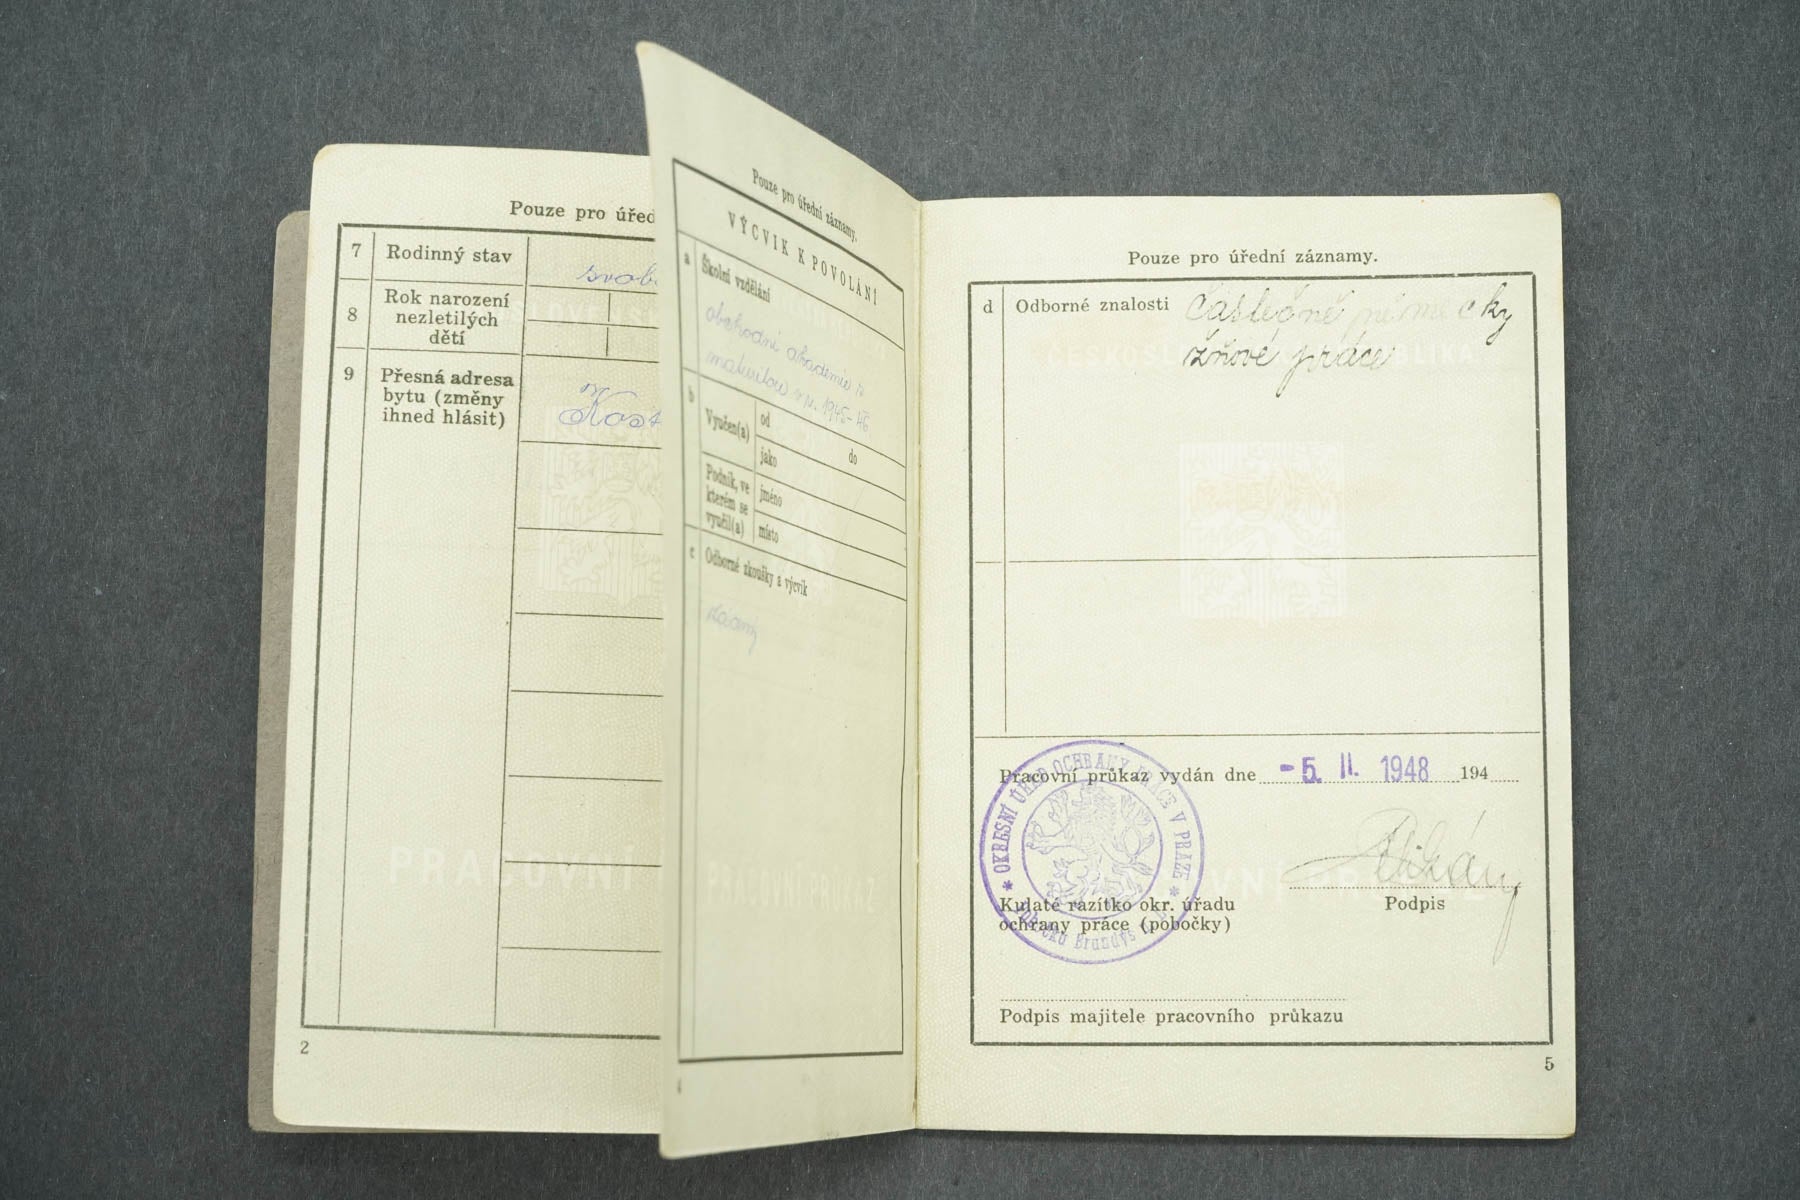 Pouze pro úřed
7 Rodinný stav svob
8 Rok narození
nezletilých
dětí
9 Přesná adresa
bytu (změny
ihned hlásit)
Kost
PRACOVNÍ
2
Pouze pro úřední záznamy.
VÝCVIK K POVOLÁNÍ
a Školní vzdělání
obchodní akademie s
maturitou v r. 1945-46
b Vyučen(a) od
do
jako
Podnik, ve
kterém se
vyučil(a)
jméno
místo
c Odborné zkoušky a výcvik
žádný
PRACOVNÍ PRŮKAZ
4
Pouze pro úřední záznamy.
d Odborné znalosti částečně německy
žňové práce
d
Pracovní průkaz vydán dne -5. II. 1948 194
OKRESNÍ ÚŘAD OCHRANY PRÁCE V PRAZE
Brandýs
Kulaté razítko okr. úřadu
ochrany práce (pobočky)
Podpis
Podpis majitele pracovního průkazu
5